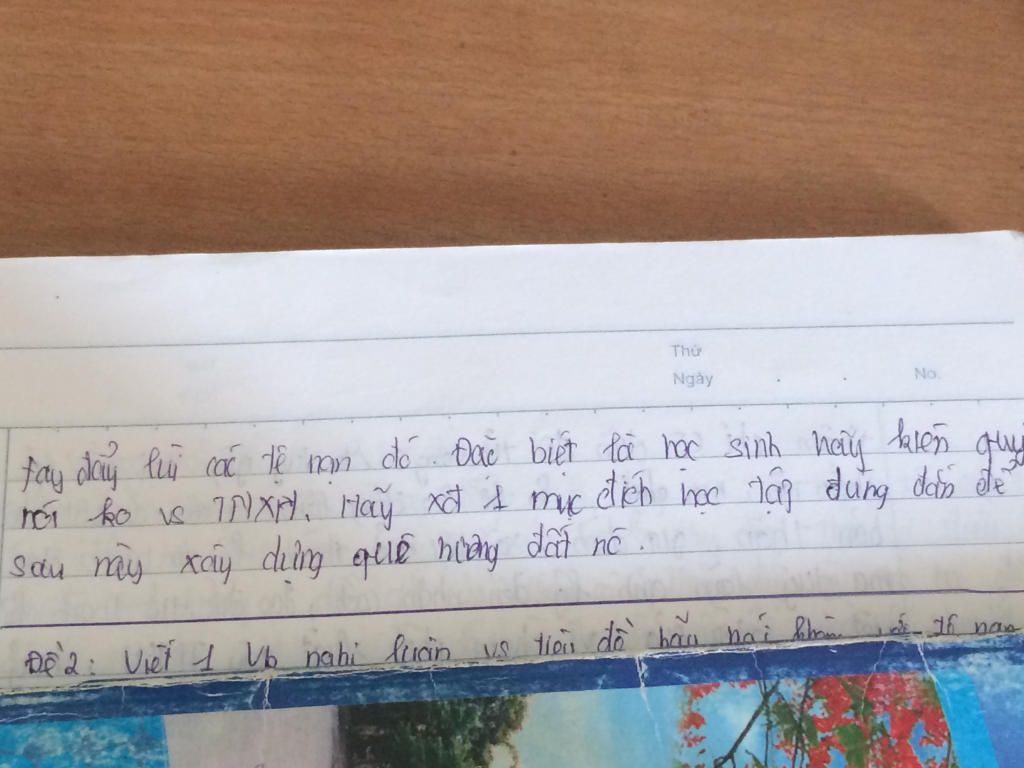 Thứ
Ngày
No.
tay đẩy lùi các tệ nạn đó. Đặc biệt là học sinh hãy kiên quyế
nói ko vs TNXH. Hãy xđ 1 mục đích học tập đúng đắn để
sau này xây dựng quê hương đất nc.
Đề 2: Viết 1 Vb nghị luận vs tiêu đề hãy nói không với tệ nạn